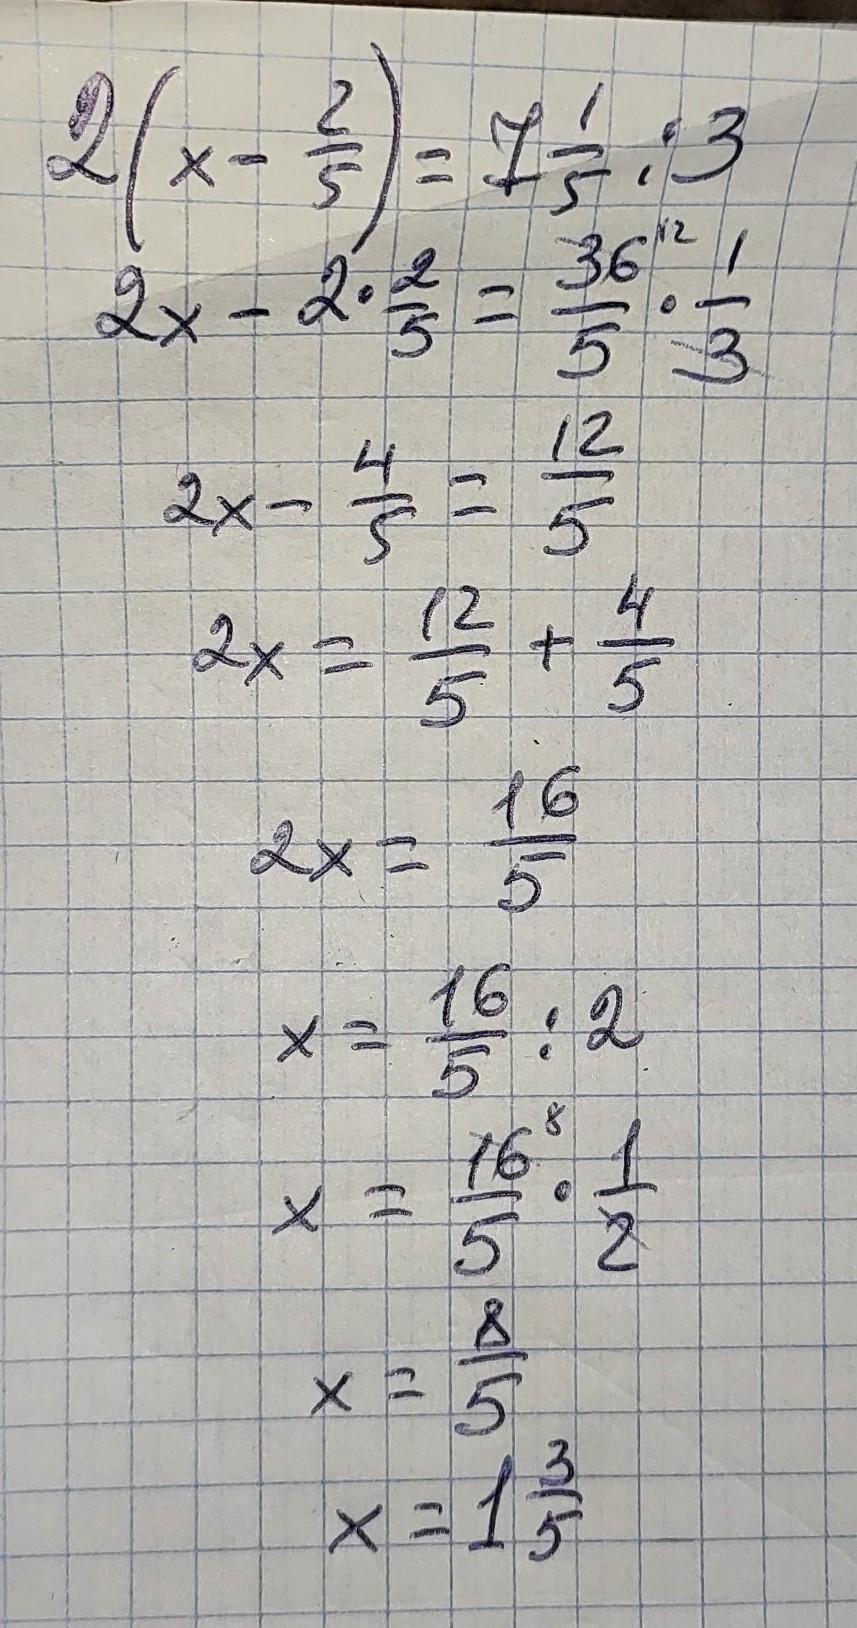 2(x - 2/5) = 7 1/5 : 3
2x - 2 · 2/5 = 36/5 ¹² · 1/3
2x - 4/5 = 12/5
2x = 12/5 + 4/5
2x = 16/5
x = 16/5 : 2
x = 16/5 ⁸ · 1/2
x = 8/5
x = 1 3/5